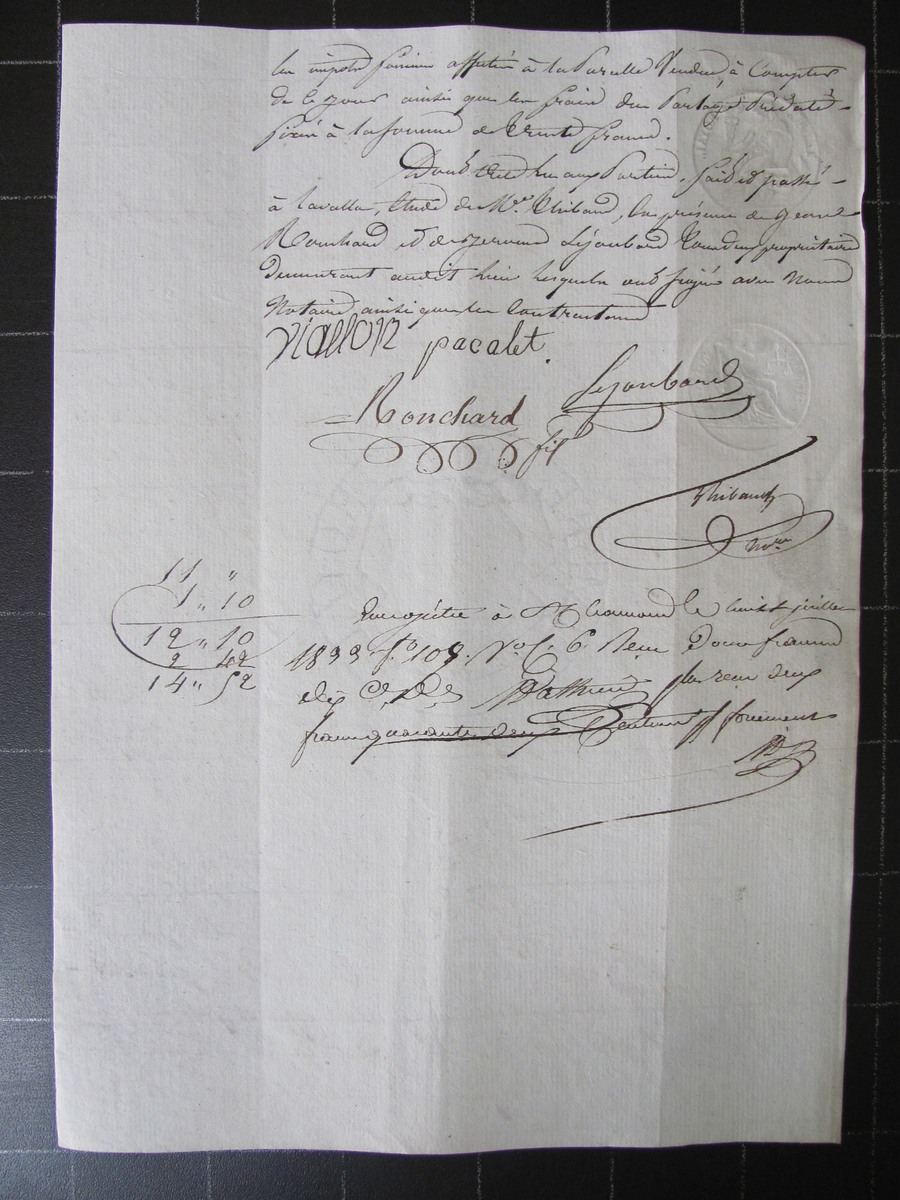 les impots fonciers affectés à la Parcelle Vendue, à Compter
de ce jour ainsi que les frais du Partage Prédaté
fixés à la somme de trente francs.
Dont acte lu aux Parties. fait et passé
à Lavalla, Etude de Me. Thibaud, en présence de
Ronchard et de Lyonbard propriétaires
demeurant audit lieu lesquels ont signés avec Nous
Notaire ainsi que les Contractans
Viallon pacalet.
Lyonbard
Ronchard
fils
Thibaud
Nre
11 "
1 " 10
12 " 10
2 42
14 " 52
Enregistré à St Chamond le huit juillet
1833 fo. 109. Vo. C. 6. Reçu Douze francs
dix c. plus reçu deux
francs quarante deux Centimes